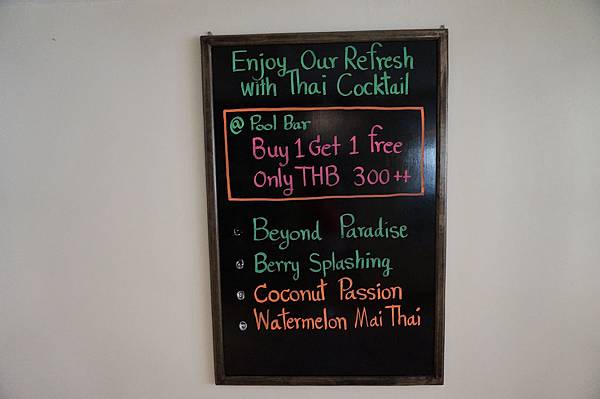 Enjoy Our Refresh
with Thai Cocktail
@ Pool Bar
Buy 1 Get 1 free
Only THB 300++
Beyond Paradise
Berry Splashing
Coconut Passion
Watermelon Mai Thai